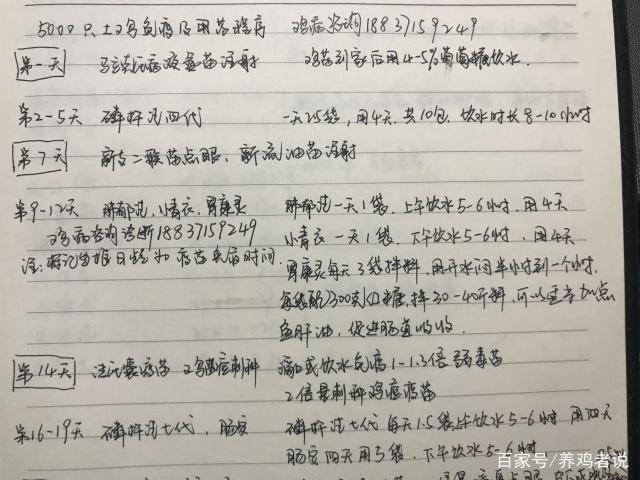 5000只土鸡免疫及用药程序 鸡病咨询18837159249
第一天 马立克氏病疫苗注射 鸡苗到家后用4-5%葡萄糖饮水.
第2-5天 磷杆泣四代 一天2.5袋,用4天.共10包.饮水时长8-10小时
第7天 新支二联苗点眼,新流油苗注射
第9-12天 肺郁泣,小青衣,胃康灵 肺郁泣一天1袋.上午饮水5-6小时.用4天
鸡病咨询诊断18837159249 小青衣一天1袋.下午饮水5-6小时.用4天
注:标记生熊日龄和疫苗免疫时间. 胃康灵每天3袋拌料,用开水闷半小时到一个小时.
每袋配300克红糖,拌30-40斤料,可以适当加点
鱼肝油,促进肠道吸收.
第14天 法氏囊疫苗 鸡痘刺种 滴口或饮水免疫1-1.3倍弱毒苗
2倍量刺种鸡痘疫苗
第16-19天 磷杆泣七代,肠安 磷杆泣七代每天1.5袋上午饮水5-6小时 用四天
肠安四天用5袋.下午饮水5-6小时
百家号/养鸡者说